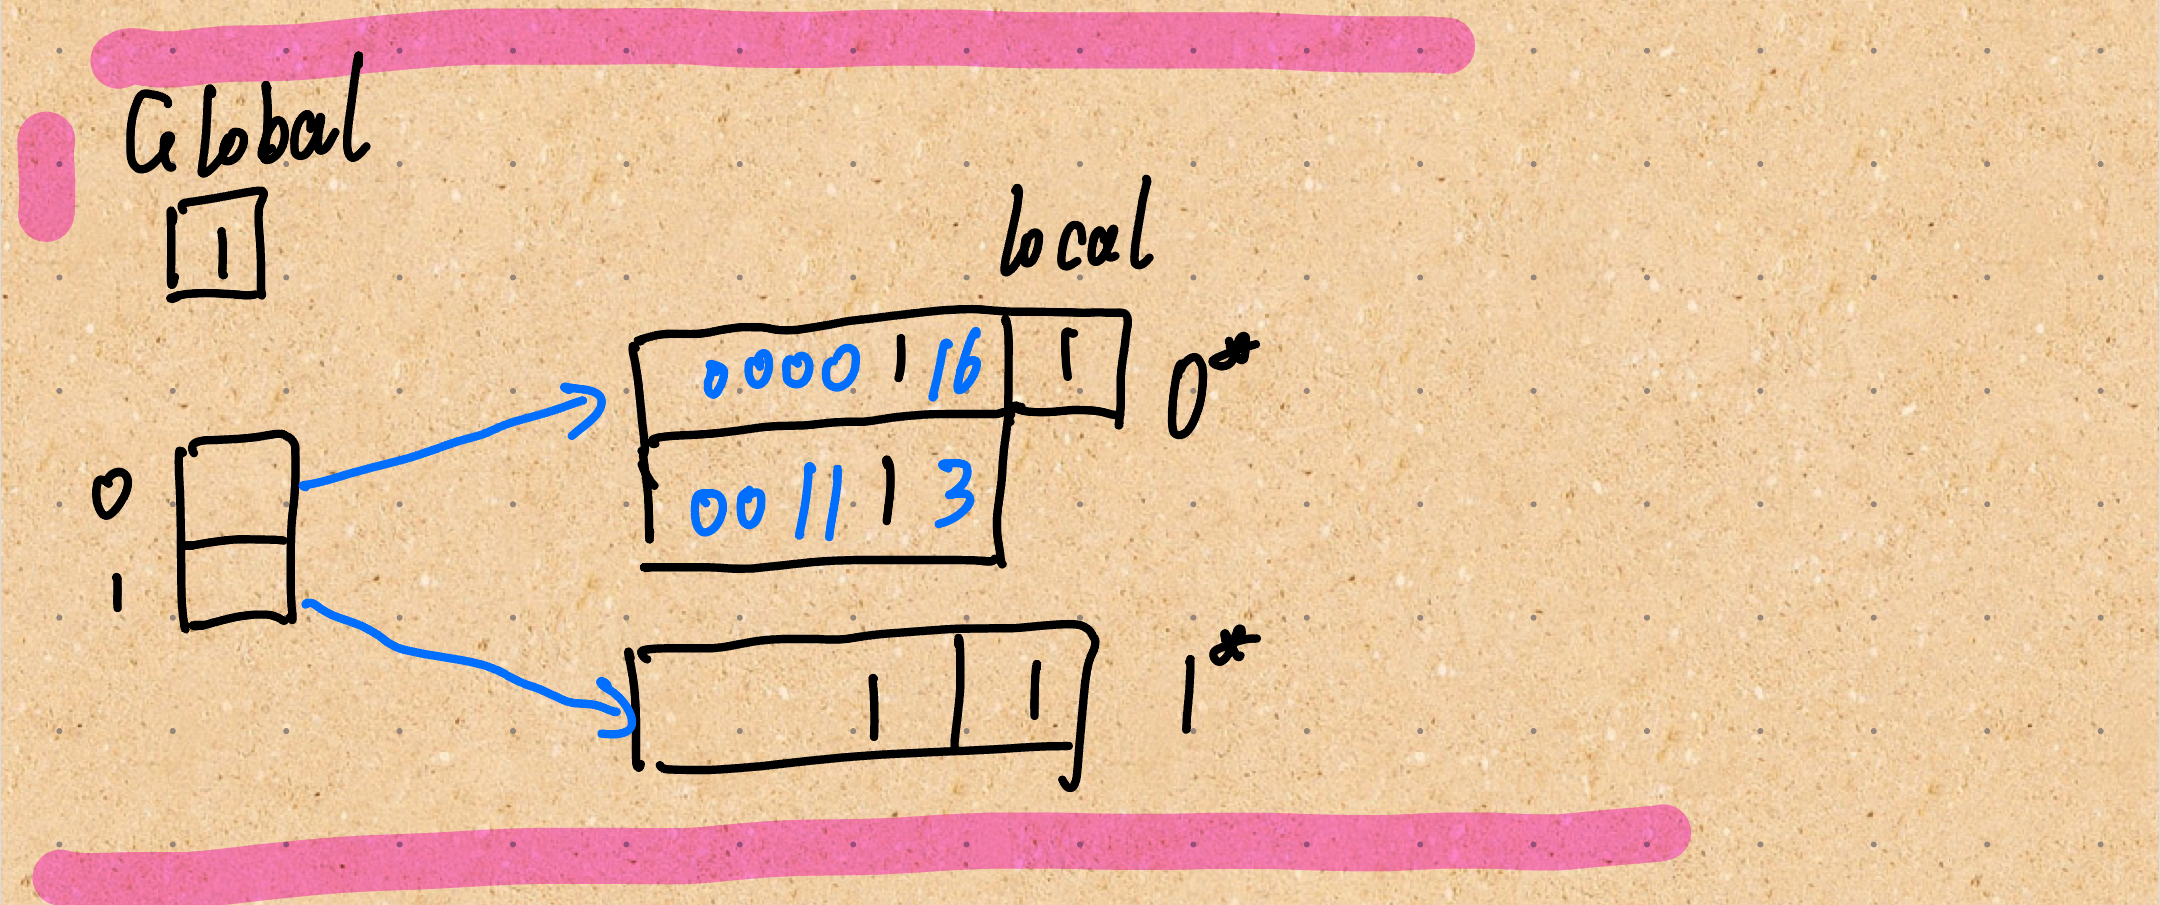 Global
1
local
0000 | 16 1 0*
0
0011 | 3
1
| 1 1*